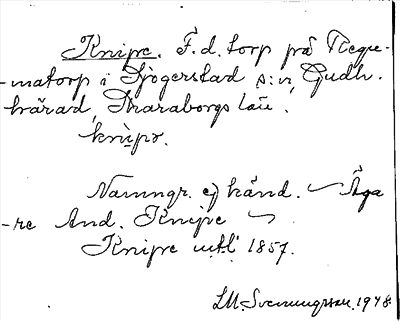 Knipe. F. d. torp på Regu-
-matorp i Sjogerstad s:n, Gudh.
härad, Skaraborgs län.
knìpə.
Namngr. ej känd. Äga
-re And. Knipe
Knipe utfl 1857.
LM. Svenungsson. 1948.